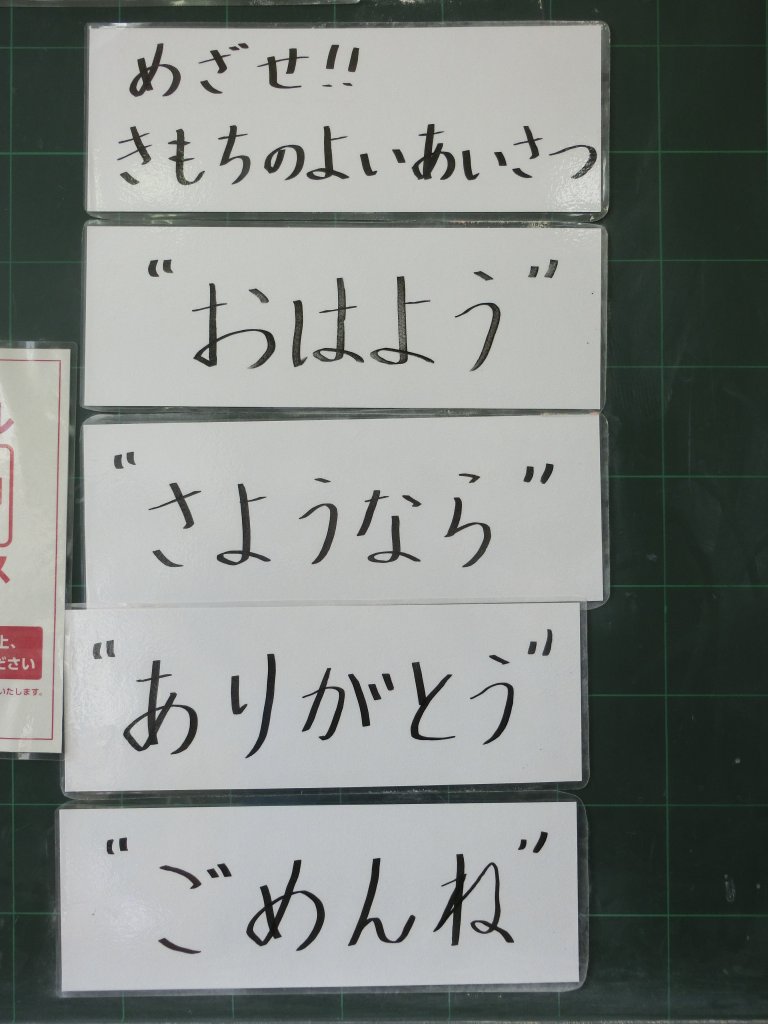 めざせ!!
きもちのよいあいさつ
“おはよう”
“さようなら”
“ありがとう”
“ごめんね”
ル
ス
上、
ださい
いたします。